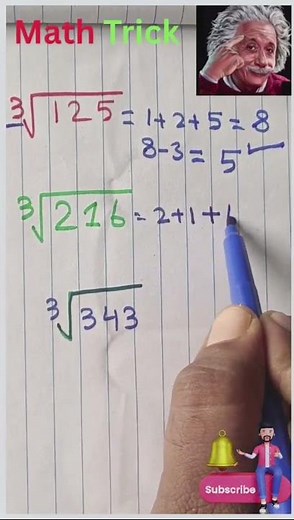 Math Trick
∛125 = 1+2+5 = 8
8-3 = 5
∛216 = 2+1+
∛343
Subscribe